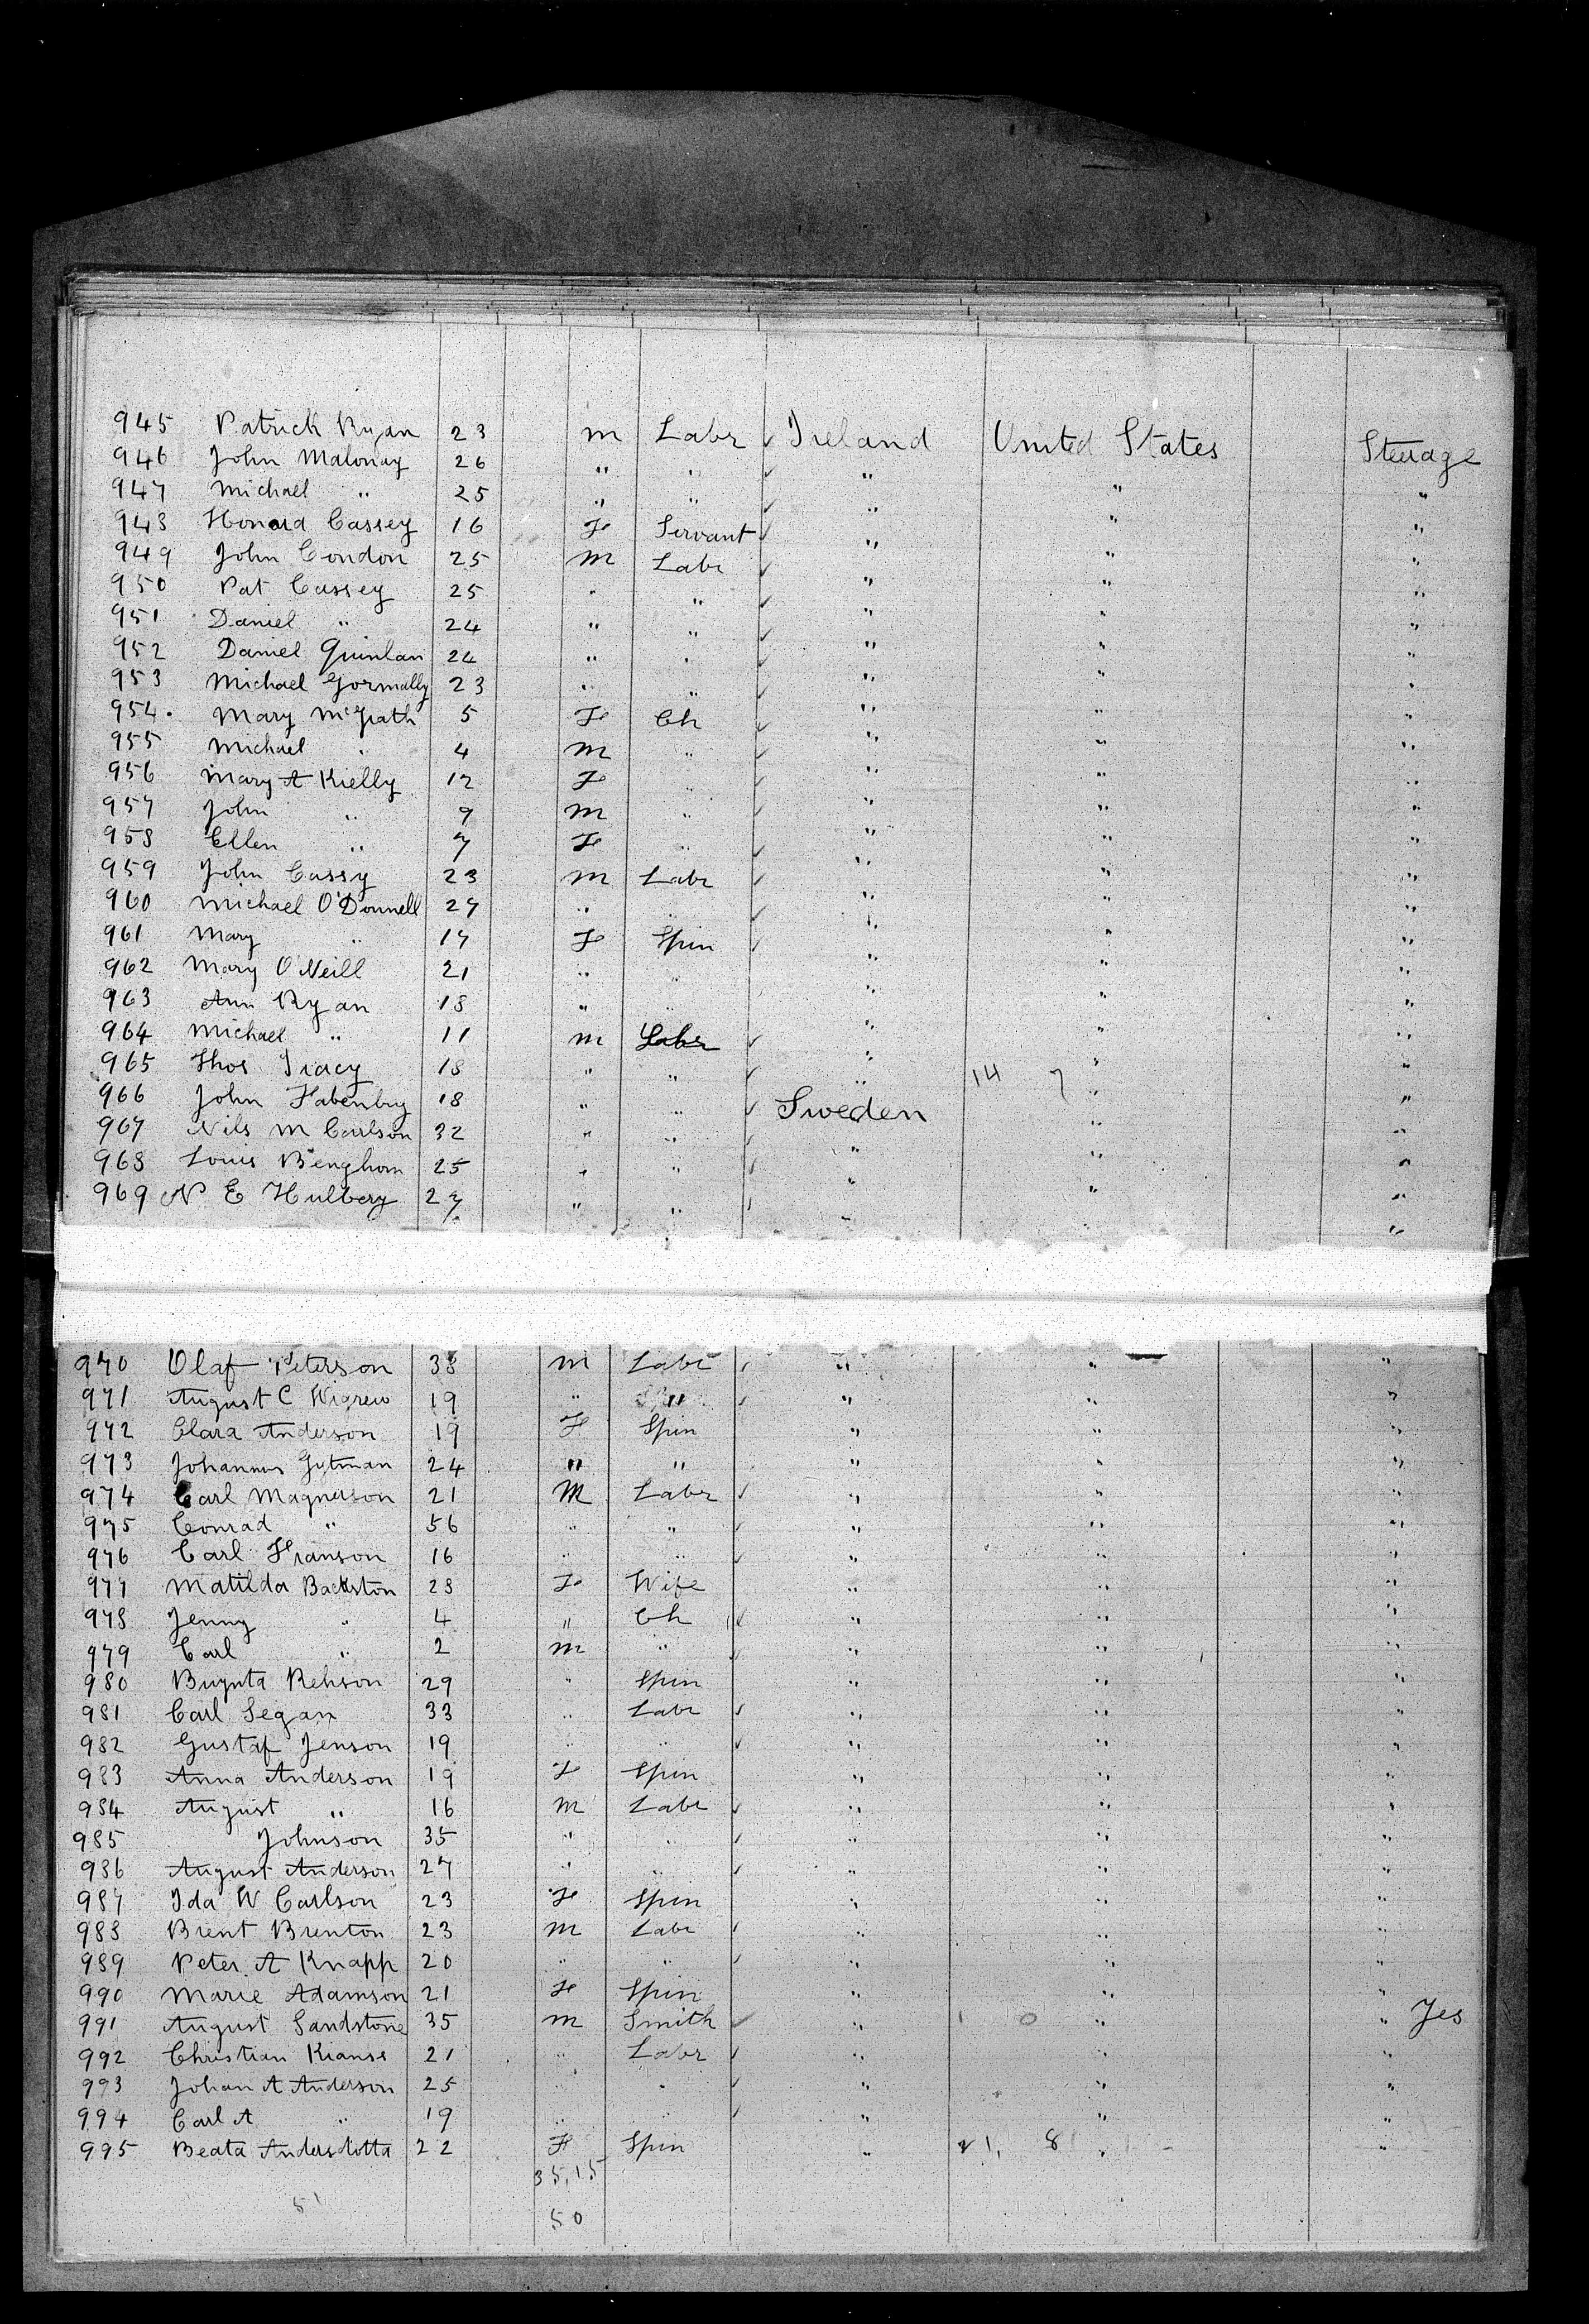 945 Patrick Ryan 23 m Labr Ireland United States Steerage
946 John Malonay 26 " " " " "
947 Michael " 25 " " " " "
948 Honora Cassey 16 F Servant " " "
949 John Condon 25 m Labr " " "
950 Pat Cassey 25 " " " " "
951 Daniel " 24 " " " " "
952 Daniel Quinlan 24 " " " " "
953 Michael Gormally 23 " " " " "
954 Mary McGrath 5 F Ch " " "
955 Michael " 4 m " " " "
956 Mary A Kielly 12 F " " " "
957 John " 9 m " " " "
958 Ellen " 7 F " " " "
959 John Cassy 23 m Labr " " "
960 Michael O'Donnell 27 " " " " "
961 Mary " 17 F Spin " " "
962 Mary O'Neill 21 " " " " "
963 Ann Ryan 18 " " " " "
964 Michael " 11 m Labr " " "
965 Thos Tracy 18 " " " 14 7 " "
966 John 18 " " Sweden " "
967 Nils M Carlson 32 " " " " "
968 Louis Benghom 25 " " " " "
969 N E Hulberg 27 " " " " "
970 Olaf Peterson 38 m Labr " " "
971 August C 19 " " " " "
972 Clara Anderson 19 F Spin " " "
973 Johannus Gutman 24 " " " " "
974 Carl Magnerson 21 M Labr " " "
975 Conrad " 56 " " " " "
976 Carl Franson 16 " " " " "
977 Matilda Backston 28 F Wife " " "
978 Jenny " 4 " Ch " " "
979 Carl " 2 m " " " "
980 Rehson 29 " Spin " " "
981 Carl Segan 33 " Labr " " "
982 Gustaf Jenson 19 " " " " "
983 Anna Anderson 19 F Spin " " "
984 August " 16 m Labr " " "
985 Johnson 35 " " " " "
986 August Anderson 27 " " " " "
987 Ida W Carlson 23 F Spin " " "
988 Brent Brenton 23 m Labr " " "
989 Peter A Knapp 20 " " " " "
990 Marie Adamson 21 F Spin " " "
991 August Sandstone 35 m Smith " 1 0 " " Yes
992 Christian Kranss 21 " Labr " " "
993 Johan A Anderson 25 " " " " "
994 Carl A " 19 " " " " "
995 Beata Andersdotta 22 F Spin " 21, 8 " "
35,15
51
50